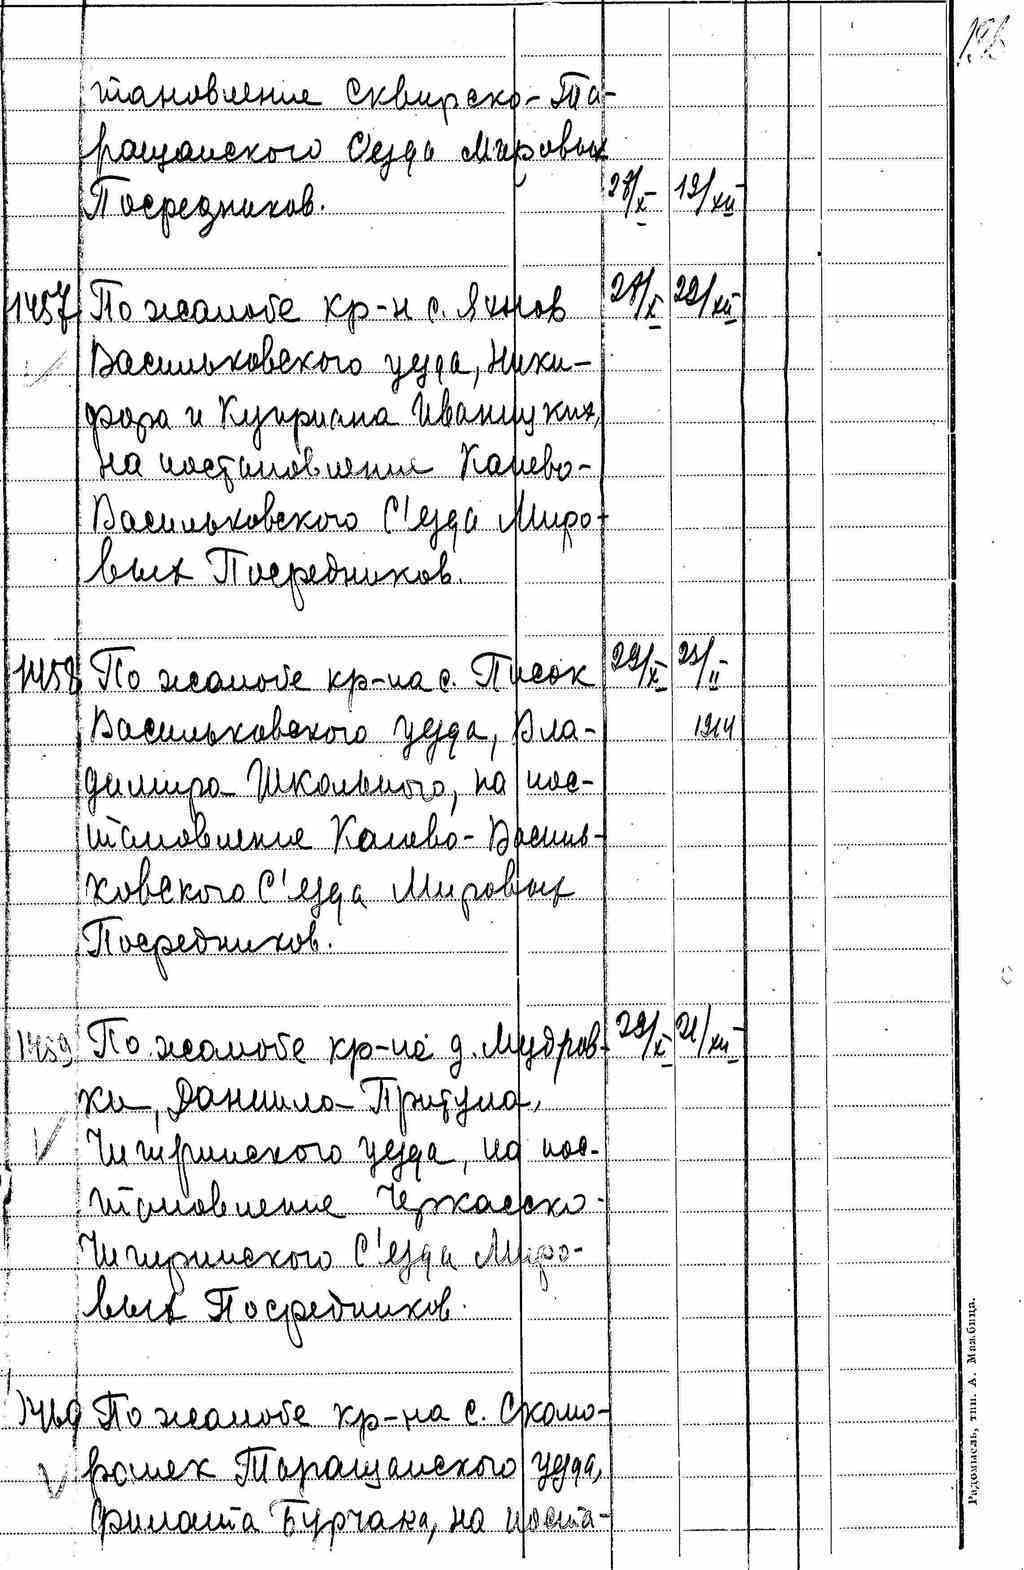 становление Сквирско-Та-
ращанского С'езда Мировых
Посредников. 28/X 19/XII
1457 По жалобе кр-н с. Яхнов 28/X 29/XII
Васильковского уезда, Ники-
фора и Куприана Иваницких,
на постановление Канево-
Васильковского С'езда Миро-
вых Посредников.
1458 По жалобе кр-на с. Писок 29/X 23/II
Васильковского уезда, Вла- 1914
димира Школьного, на пос-
тановление Канево-Василь-
ковского С'езда Мировых
Посредников.
1459 По жалобе кр-на д. Мудров- 29/X 21/XII
ки, Даниила Притула,
Чигиринского уезда, на пос-
тановление Черкасско-
Чигиринского С'езда Миро-
вых Посредников.
1460 По жалобе кр-на с. Скомо-
рошек Таращанского уезда,
Филата Бурчака, на поста-
Радомысль, тип. А. Мажбица.